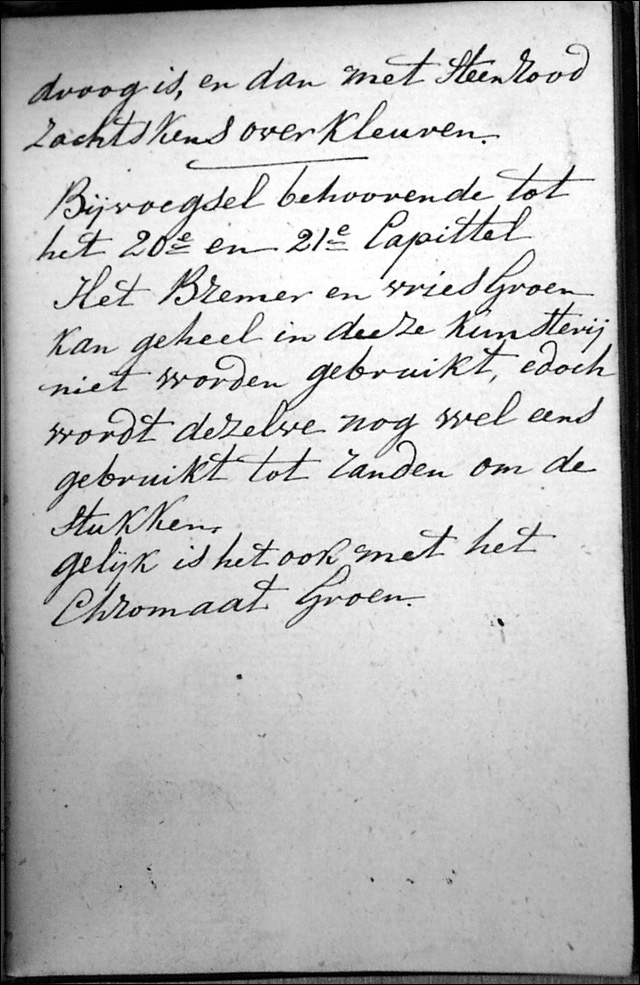 droog is, en dan met Steenrood
zachtskens overkleuren.
Bijvoegsel behoorende tot
het 20e en 21e Capittel
Het Bremer en vries Groen
kan geheel in deeze kunsterij
niet worden gebruikt, edoch
wordt dezelve nog wel eens
gebruikt tot randen om de
Stukken.
gelijk is het ook met het
Chromaat Groen.